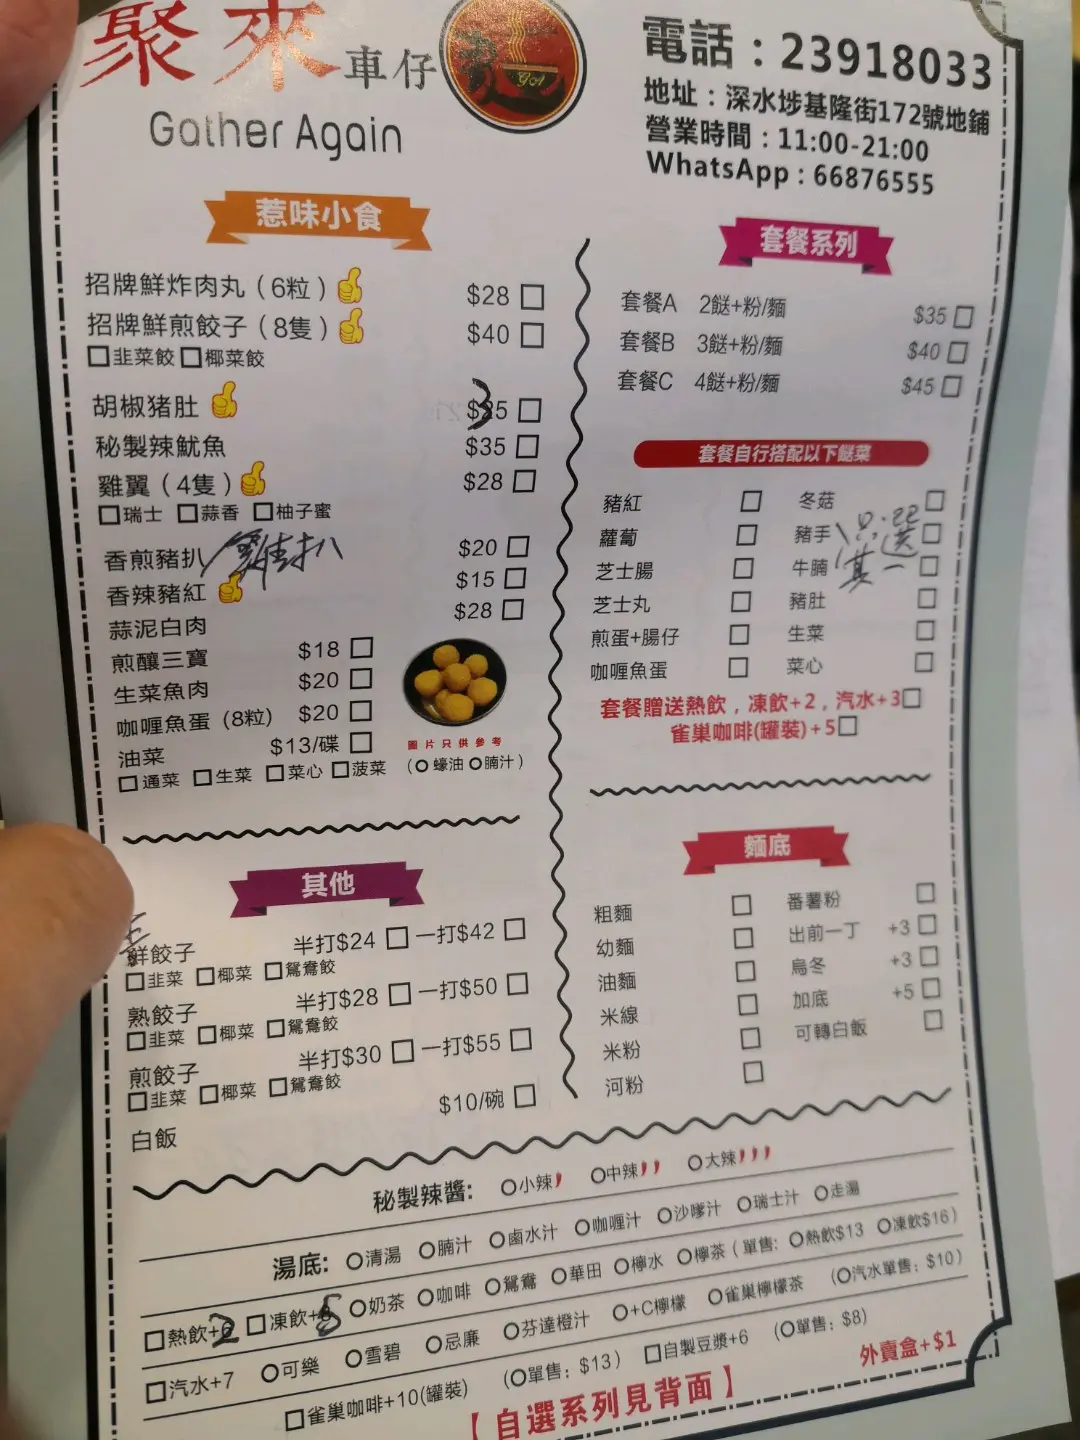 聚來車仔
Gather Again
電話：23918033
地址：深水埗基隆街172號地鋪
營業時間：11:00-21:00
WhatsApp：66876555
惹味小食
招牌鮮炸肉丸（6粒） $28
招牌鮮煎餃子（8隻） $40
韭菜餃 椰菜餃
胡椒豬肚 $35
秘製辣魷魚 $35
雞翼（4隻） $28
瑞士 蒜香 柚子蜜
香煎豬扒/雞扒 $20
香辣豬紅 $15
蒜泥白肉 $28
煎釀三寶 $18
生菜魚肉 $20
咖喱魚蛋 (8粒) $20
油菜 $13/碟
通菜 生菜 菜心 菠菜 （蠔油 腩汁）
圖片只供參考
其他
鮮餃子 半打$24 一打$42
韭菜 椰菜 鴛鴦餃
熟餃子 半打$28 一打$50
韭菜 椰菜 鴛鴦餃
煎餃子 半打$30 一打$55
韭菜 椰菜 鴛鴦餃
白飯 $10/碗
套餐系列
套餐A 2餸+粉/麵 $35
套餐B 3餸+粉/麵 $40
套餐C 4餸+粉/麵 $45
套餐自行搭配以下餸菜
豬紅 冬菇
蘿蔔 豬手
芝士腸 牛腩
只選其一
芝士丸 豬肚
煎蛋+腸仔 生菜
咖喱魚蛋 菜心
套餐贈送熱飲，凍飲+2，汽水+3
雀巢咖啡(罐裝)+5
麵底
粗麵 番薯粉
幼麵 出前一丁 +3
油麵 烏冬 +3
米線 加底 +5
米粉 可轉白飯
河粉
秘製辣醬: 小辣 中辣 大辣
湯底: 清湯 腩汁 鹵水汁 咖喱汁 沙嗲汁 瑞士汁 走湯
熱飲+2 凍飲+5 奶茶 咖啡 鴛鴦 華田 檸水 檸茶（單售: 熱飲$13 凍飲$16）
汽水+7 可樂 雪碧 忌廉 芬達橙汁 +C檸檬 雀巢檸檬茶 （汽水單售：$10）
雀巢咖啡+10(罐裝) （單售：$13） 自製豆漿+6 （單售：$8）
外賣盒+$1
【自選系列見背面】